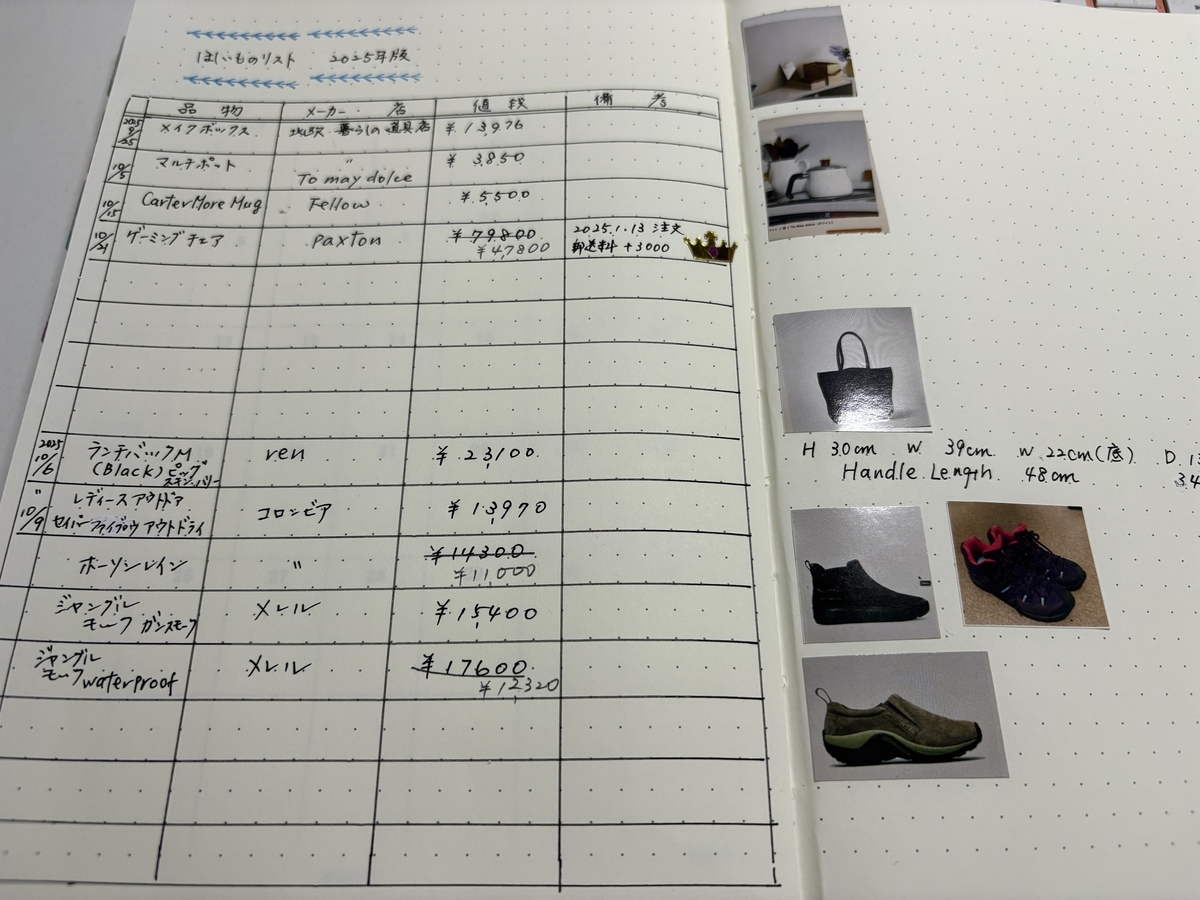 ほしいものリスト 2025年版
品物 メーカー・店 値段 備考
2025 9/25 メイクボックス 北欧、暮らしの道具店 ¥13976
10/5 マルチポット 〃 To may dolce ¥3,850
10/15 Carter More Mug Fellow ¥5,500
10/21 ゲーミングチェア paxton ¥79800 2025.1.13 注文
¥47,800 郵送料 +3000
2025 10/6 ランチバックM ren ¥23,100
(Black)ピッグ
スキンバリー
〃 10/9 レディースアウトドア コロンビア ¥13,970
セイバーファイブロウアウトドライ
ホーソンレイン 〃 ¥14300
¥11,000
ジャングル メレル ¥15,400
モーフ ガンスモーク
ジャングル メレル ¥17600
モーフ waterproof ¥12,320
H 30cm W 39cm W 22cm(底) D 13
Handle Length 48cm 34